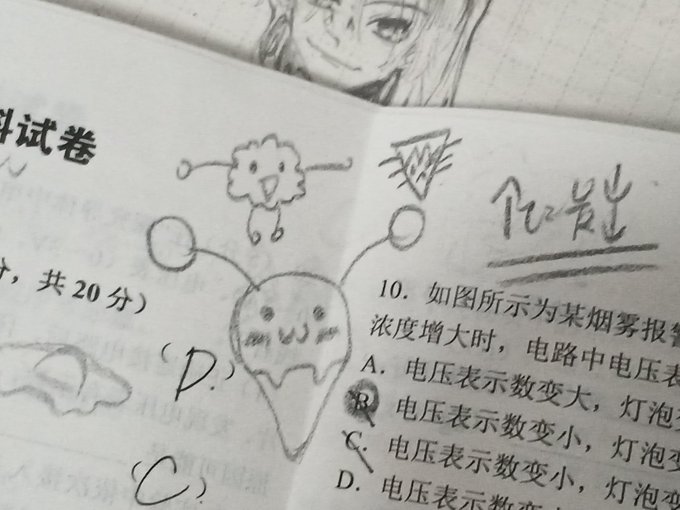 科试卷
分，共20分）
(D.)
(C)
10. 如图所示为某烟雾报警
浓度增大时，电路中电压表
A. 电压表示数变大，灯泡变
B. 电压表示数变小，灯泡变
C. 电压表示数变小，灯泡变
D. 电压表示数变